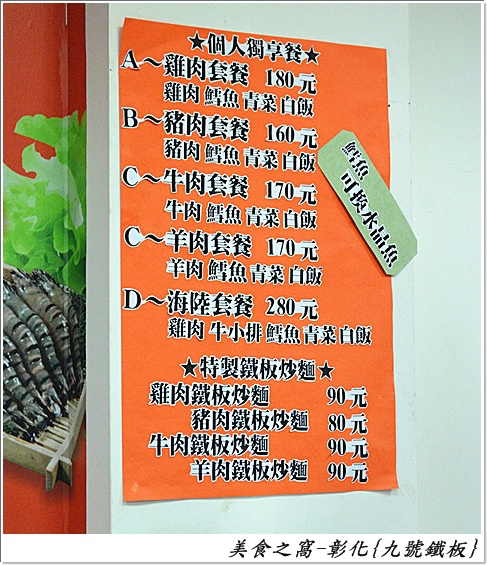 ★個人獨享餐★
A～雞肉套餐 180元
雞肉 鱈魚 青菜 白飯
B～豬肉套餐 160元
豬肉 鱈魚 青菜 白飯
C～牛肉套餐 170元
牛肉 鱈魚 青菜 白飯
C～羊肉套餐 170元
羊肉 鱈魚 青菜 白飯
D～海陸套餐 280元
雞肉 牛小排 鱈魚 青菜 白飯
★特製鐵板炒麵★
雞肉鐵板炒麵 90元
豬肉鐵板炒麵 80元
牛肉鐵板炒麵 90元
羊肉鐵板炒麵 90元
鱈魚
可換水晶魚
美食之窩-彰化{九號鐵板}